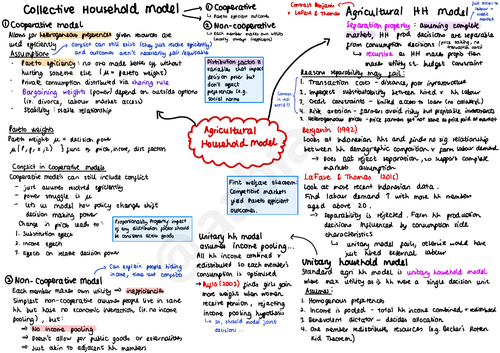 Collective Household model
① Cooperative
↳ Pareto efficient outcome
② Non-cooperative
↳ Each member makes own utility
① Cooperative model
Allows for heterogenous preferences given resources are
used efficiently
Assumptions
- Pareto efficiency = no one made better off without
hurting someone else (μ = pareto weight)
- Private consumption distributed via sharing rule
- Bargaining weights (power) depend on outside options
(i.e. divorce, labour market access)
- Stability : stable relationship
Distribution factor =
variables that impact
decision power but
don't affect
preferences (e.g.
social norms
Pareto weights
Pareto weight μ = decision power
Conflict in cooperative models
Cooperative models can still include conflict
- just assume resolved efficiently
- power struggle is μ
- lets us model how policy change shift
decision making power
Change in price leads to :
1. Substitution effect
2. Income effects
3. Effects on relative decision power
Proportionality Property: impact
of any distribution factor should
be constant across goods
② Non-Cooperative model
Can explain people hiding
income,
Each member makes own utility → inefficiencies
Simplest non-cooperative assumes people live in same
HH but have no economic interaction (ie no income
pooling), but :
↳ No income pooling
↳ Doesn't allow for public goods or externalities
↳ Just akin to adjacent HH members
Agricultural
Household model
Common in
real
world ??
First welfare theorem:
Competitive markets
yield Pareto efficient
outcomes.
Unitary HH model
assumes income pooling...
All HH income combined &
redistributed to each member's
consumption is optimised
• Duflo (2003) finds girls gain
more weight when women
receive pension, rejecting
income pooling hypothesis
↳ So, should model joint
decisions...
Contrast Benjamin
v LaFave & Thomas
Agricultural HH model
Separation property : assuming complete
market, HH prod decisions are separable
from consumption decisions
↳ recursive as HH makes prod then
makes utility st budget constraint
Reasons separability may fail :
1. Transactions costs - distance, poor infrastructure
2. Imperfect substitutability between hired v HH labour
3. Credit constraints - limited access to loans (no collateral)
4. Risk aversion - farmers avoid risky but profitable investments
5. Heterogenous price - price farmers get not same as price paid at market
Benjamin (1992)
Looks at Indonesian HHs and finds no sig relationship
between HH demographic composition & farm labour demand
↳ Does not reject separation, so support complete
market assumption
LaFave & Thomas (2016)
Look at more recent Indonesian data.
Find labour demand ↑ with more HH member
aged above 20,
↳ Separability is rejected. Farm HH production
decisions influenced by consumption side
characteristics
↳ unitary model fails, otherwise would have
just hired external labour
Unitary household model
Standard agri HH model is unitary household model
where max utility as if HH were a single decision unit
Assumes :
1. Homogenous preferences
2. Income is pooled - total HH income combined, & redistributed
3. Benevolent dictator - decides allocation
4. One member redistributes resources (e.g Becker's Rotten
Kid Theorem)